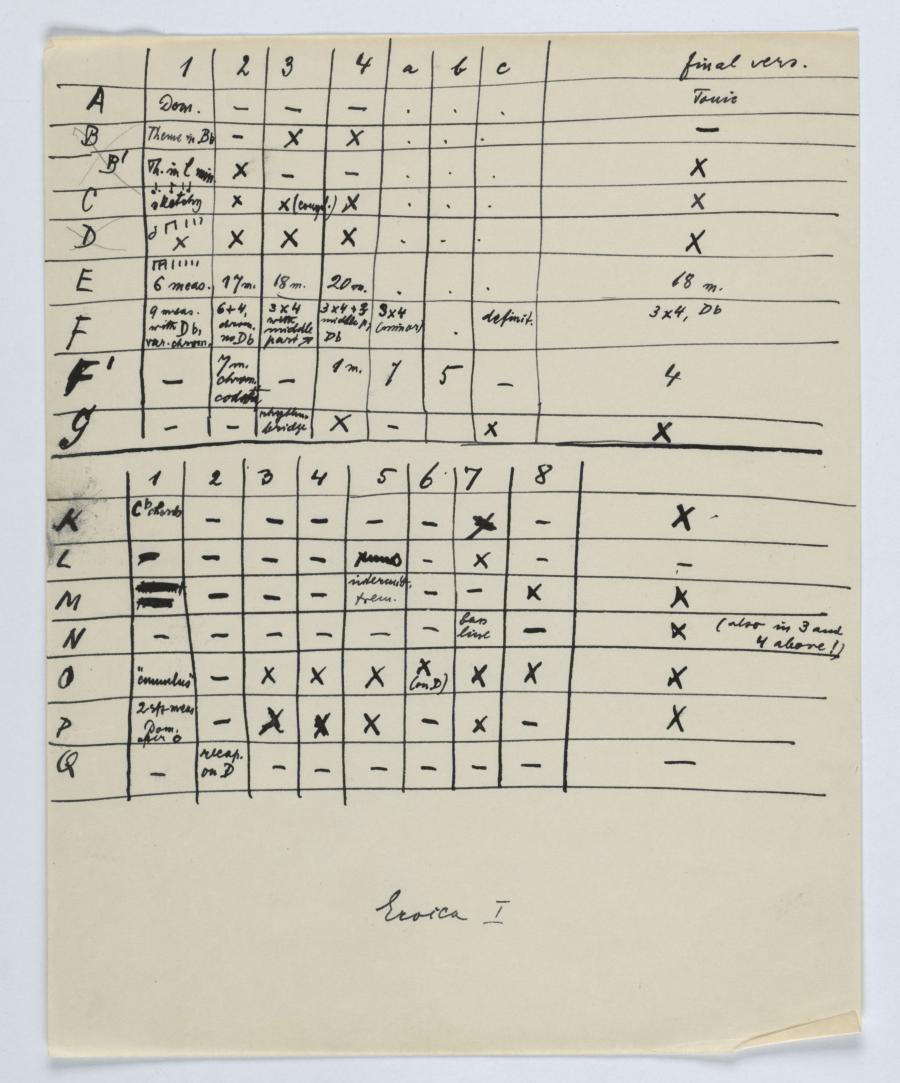 1 2 3 4 a b c final vers.
A Dom. – – – . . . Tonic
B Theme in Bb – X X . . . –
B' Th. in C min. X – – . . . X
C sketchy X X (compl.) X . . . X
D X X X X . . . X
E 6 meas. 17 m. 18 m. 20 m. . . . 18 m.
F 9 meas. with Db, var. chrom. 6+4, chrom. no Db 3x4 with middle part 3x4+3 Db 3x4 (minor) . definit. 3x4, Db
F' – 7 m. chrom. – 1 m. 7 5 – 4
G – – rhythm. bridge X – X X
1 2 3 4 5 6 7 8
K Cb chords – – – – – X – X
L – – – – – X – –
M – – – intermitt. trem. – – X X
N – – – – – – bass line – X (also in 3 and 4 above!)
O "cumulus" – X X X X (on D) X X X
P Dom. – X X X – X – X
Q – recap. on D – – – – – – –
Eroica I